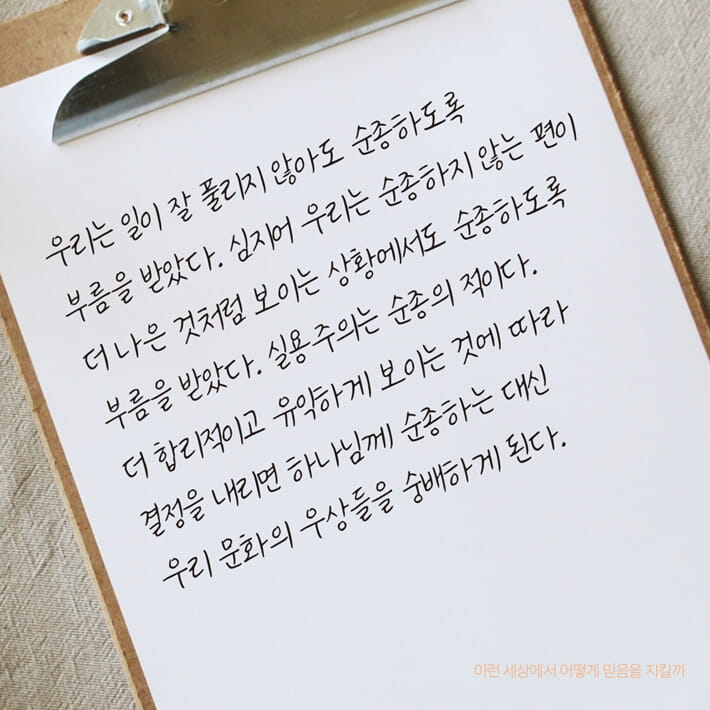 우리는 일이 잘 풀리지 않아도 순종하도록
부름을 받았다. 심지어 우리는 순종하지 않는 편이
더 나은 것처럼 보이는 상황에서도 순종하도록
부름을 받았다. 실용주의는 순종의 적이다.
더 합리적이고 유약하게 보이는 것에 따라
결정을 내리면 하나님께 순종하는 대신
우리 문화의 우상들을 숭배하게 된다.
이런 세상에서 어떻게 믿음을 지킬까